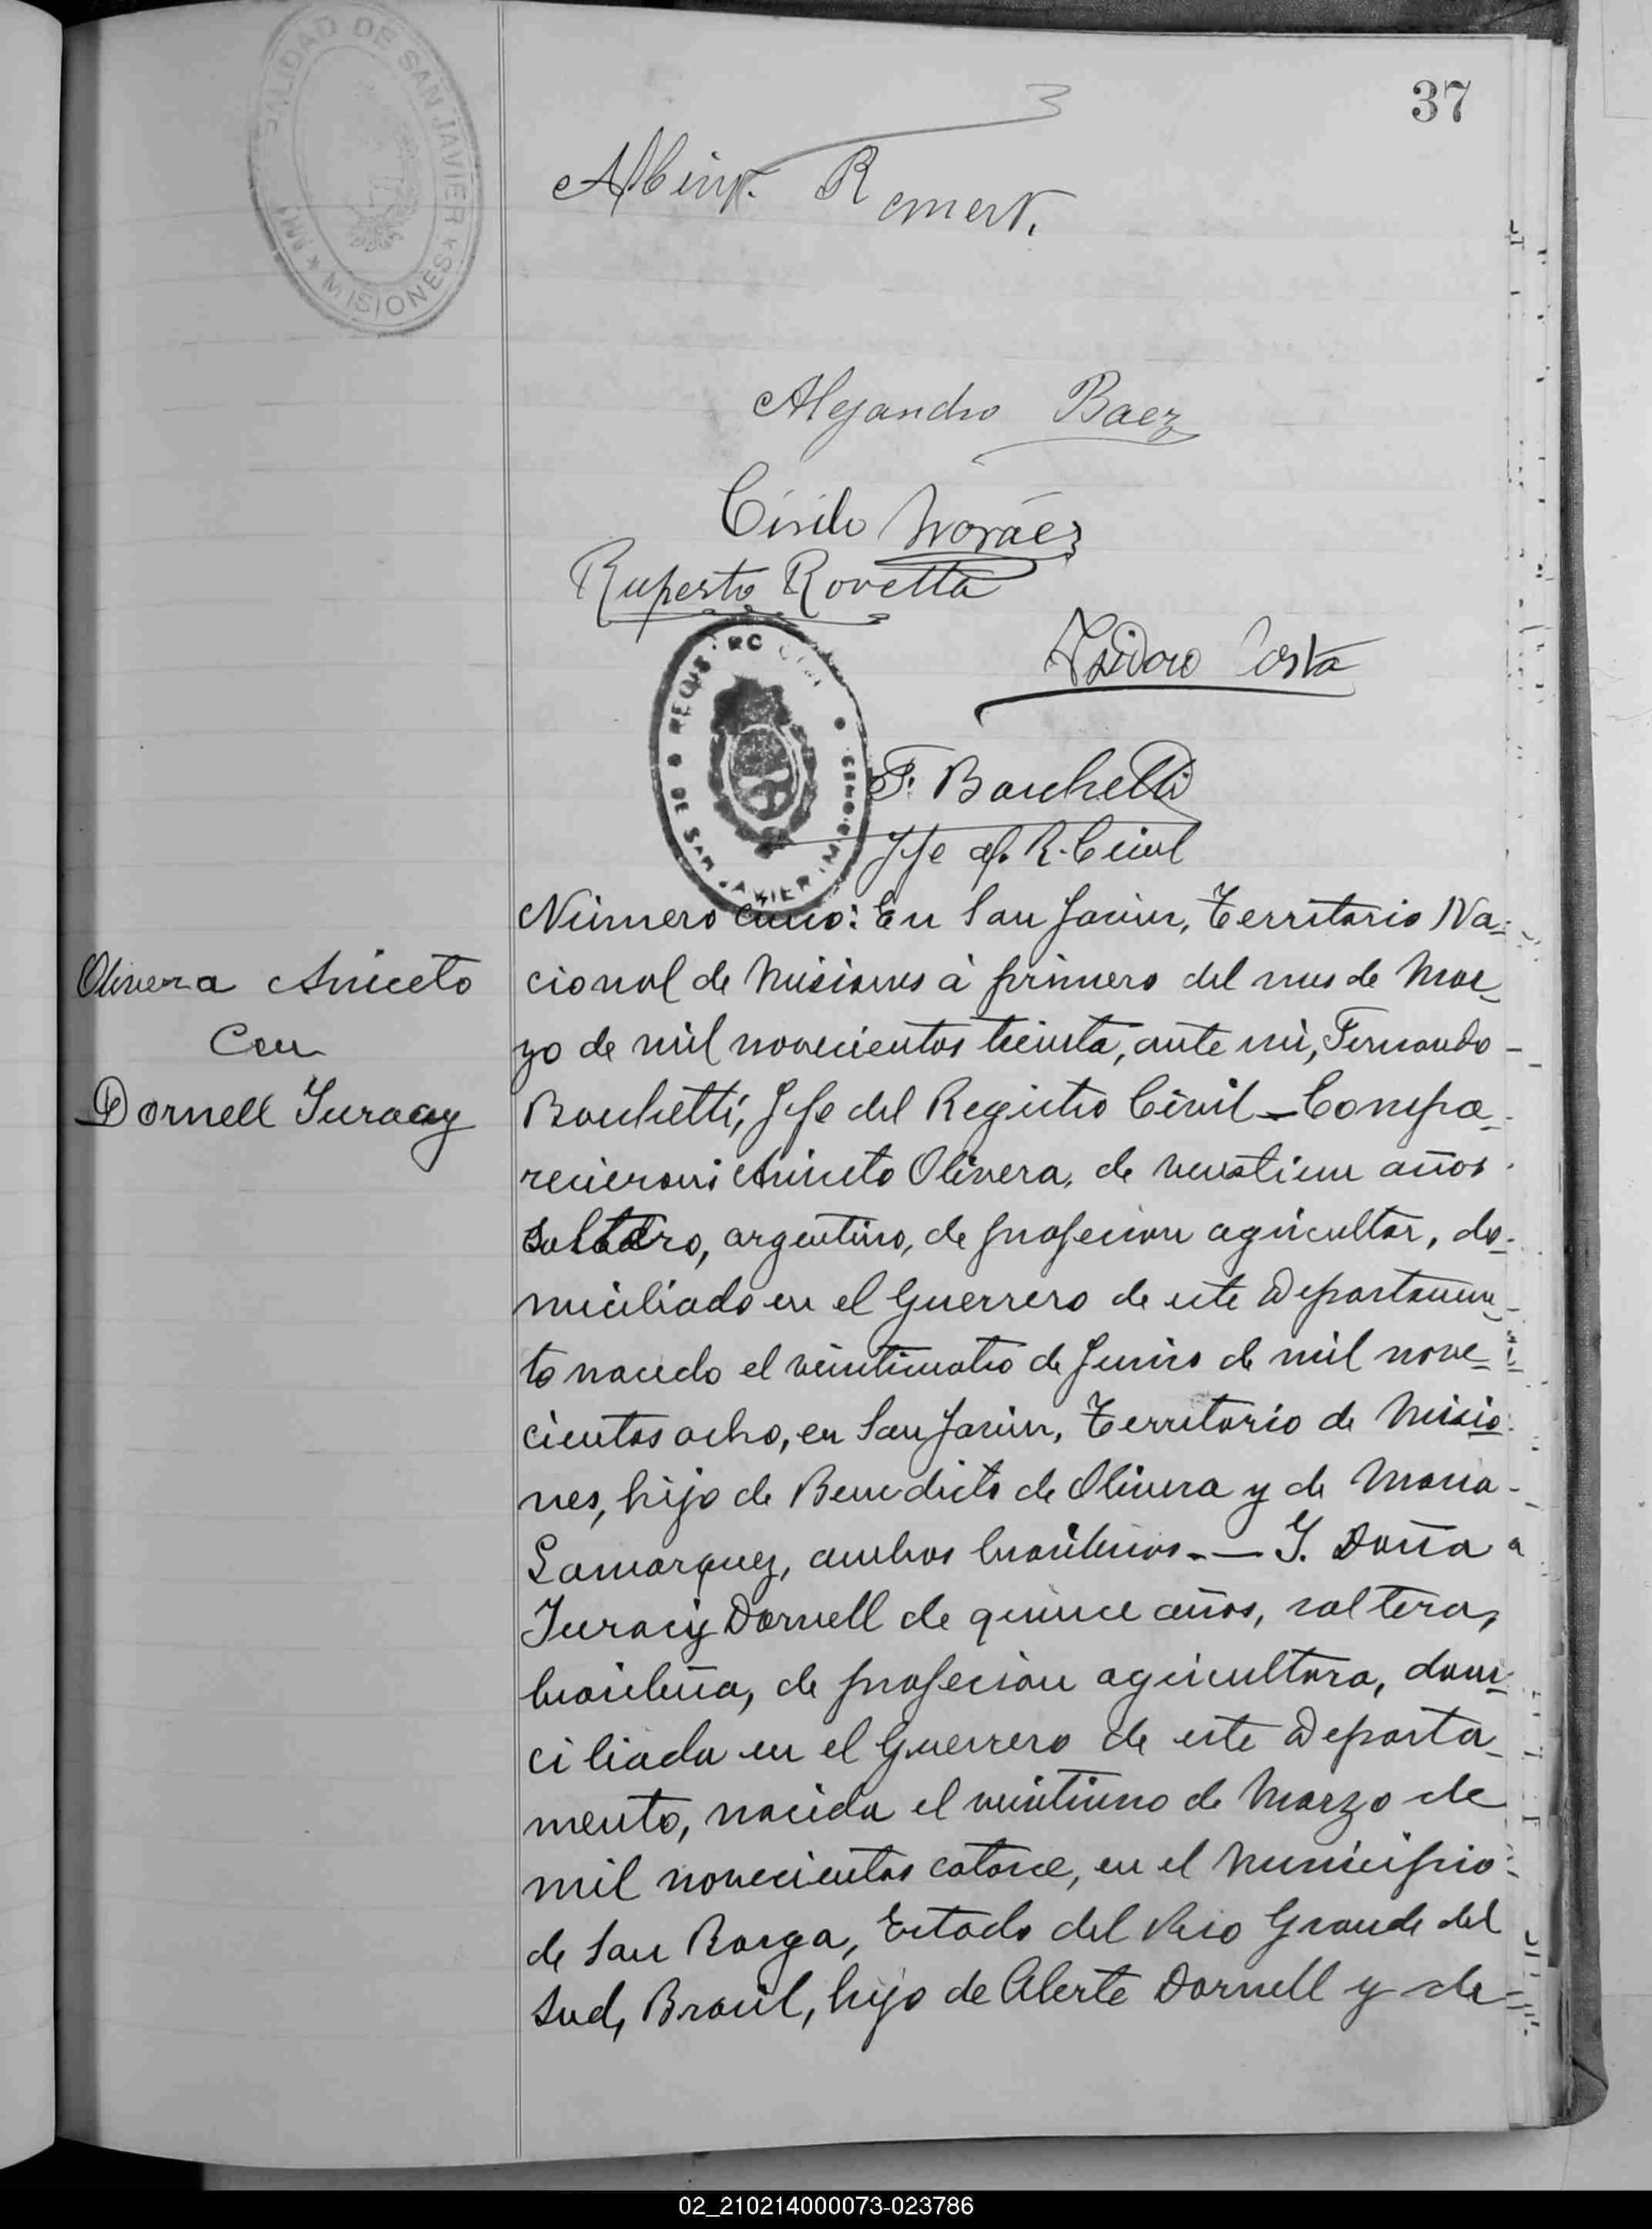 37
SALIDAD DE SAN JAVIER * MISIONES *
3
Alejandro Baez
Cirilo Moráez
Ruperto Rovetta
Isidoro Costa
REGISTRO CIVIL DE SAN JAVIER
F. Bouchetti
Jefe of. R. Civil
Olivera Aniceto
Con
Dornell Juracy
Número cinco: En San Javier, Territorio Na-
cional de Misiones á primero del mes de Mar-
zo de mil novecientos treinta, ante mi, Fernando
Bouchetti, Jefe del Registro Civil - Compa-
recieron: Aniceto Olivera, de veintiun años
soltero, argentino, de profecion agricultor, do-
miciliado en el Guerrero de este Departamen-
to nacido el veinticuatro de Junio de mil nove-
cientos ocho, en San Javier, Territorio de Misio-
nes, hijo de Benedicto de Olivera y de Maria
Lamarquez, ambos brasileños. — Y. Doña
Juracy Dornell de quince años, soltera,
brasileña, de profecion agricultora, domi-
ciliada en el Guerrero de este Departa-
mento, nacida el veintiuno de Marzo de
mil novecientos catorce, en el Municipio
de San Borga, Estado del Rio Grande del
Sud, Brasil, hijo de Alerte Dornell y de
02_210214000073-023786